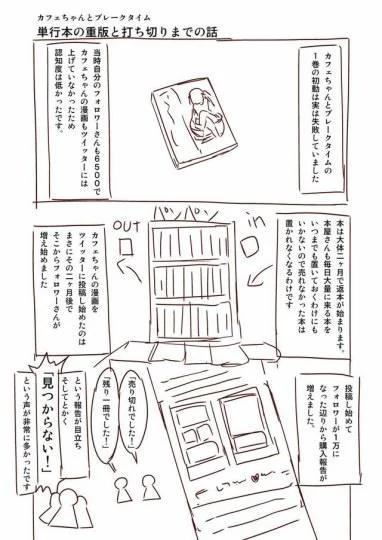 カフェちゃんとブレークタイム
単行本の重版と打ち切りまでの話
カフェちゃんとブレークタイムの
1巻の初動は実は失敗していました
当時自分のフォロワーさんも6500で
カフェちゃんの漫画もツイッターには
上げていなかったため
認知度は低かったです。
本は大体二ヶ月で返本が始まります。
本屋さんも毎日大量に来る本を
いつまでも置いておくわけにも
いかないので売れなかった本は
置かれなくなるわけです
in
パンパン
out
カフェちゃんの漫画を
ツイッターに投稿し始めたのは
まさにその二ヶ月後で
そこからフォロワーさんが
増え始めました
投稿し始めて
フォロワーが1万に
なった辺りから購入報告が
増えました。
「売り切れでした!」
「残り一冊でした!」
という報告が目立ち
そしてとかく
「見つからない!」
という声が非常に多かったです